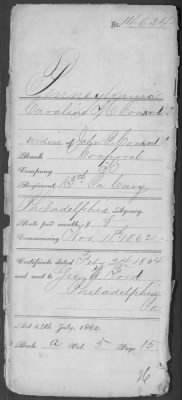 No. 14,634
Pennsylvania
Caroline
widow of John
Rank Corporal
Company
Regiment 13th Pa Cavy
Philadelphia Agency.
Rate per month, 8
Commencing Nov 1862
Certificate dated Feby 2d 1864
and sent to Geo W Ford
Philadelphia
Pa
Act 14th July, 1862.
Book a Vol. 5 Page 15